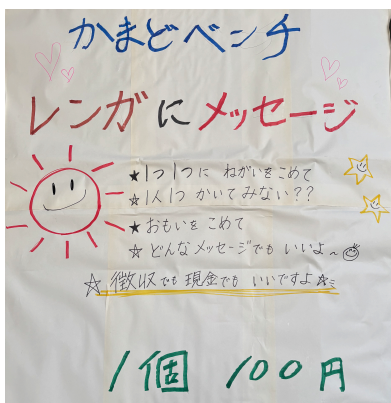 かまどベンチ
レンガにメッセージ
★1つ1つに ねがいをこめて
☆1人1つ かいてみない??
★おもいを こめて
☆どんなメッセージでも いいよ～
☆徴収でも現金でも いいですよ☆ミ
1個 100円